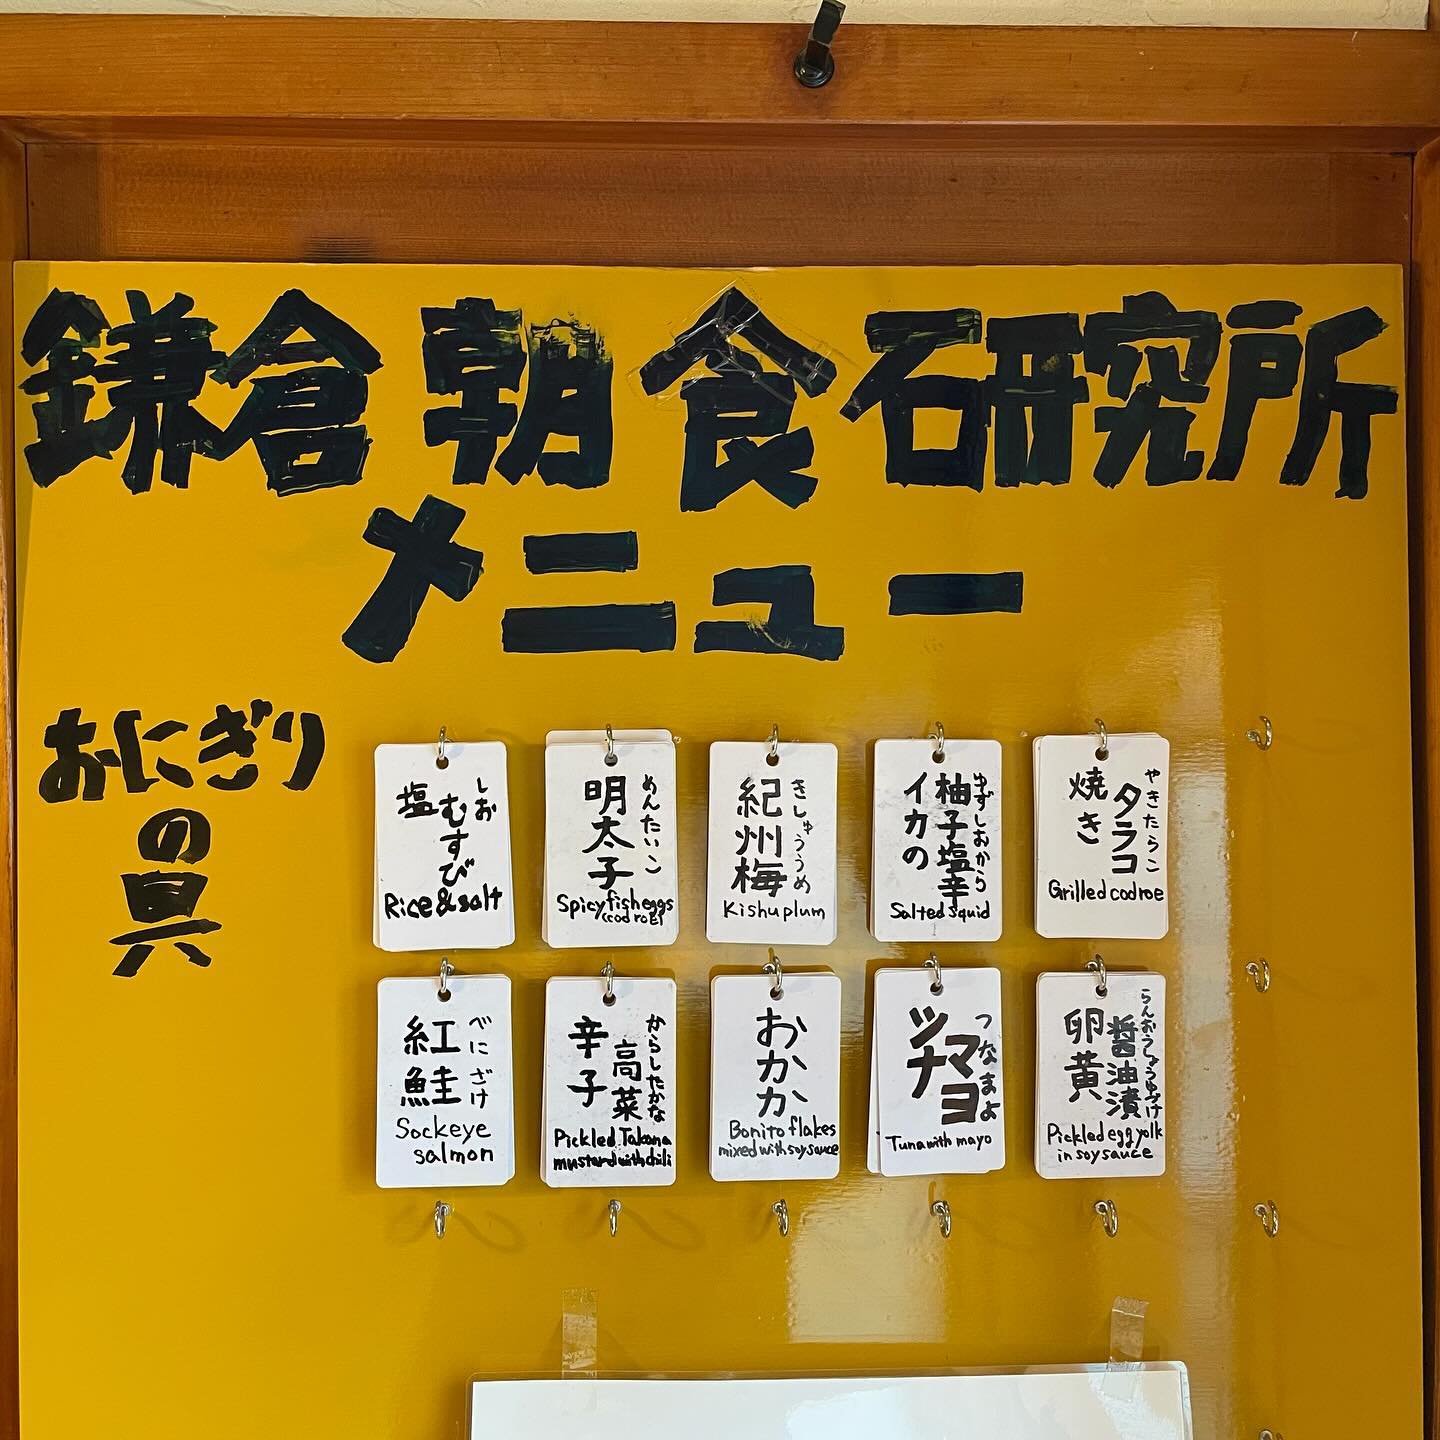 鎌倉朝食研究所
メニュー
おにぎり
の
具
しお
塩むすび
Rice & salt
めんたいこ
明太子
Spicy fish eggs
(cod roe)
きしゅううめ
紀州梅
Kishu plum
ゆずしおから
柚子塩辛
イカの
Salted squid
やきたらこ
焼き
タラコ
Grilled cod roe
べにざけ
紅鮭
Sockeye
salmon
からしたかな
辛子
高菜
Pickled Takana
mustard with chili
おかか
Bonito flakes
mixed with soy sauce
つなまよ
ツナ
マヨ
Tuna with mayo
らんおうしょうゆづけ
卵黄
醤油漬
Pickled egg yolk
in soy sauce